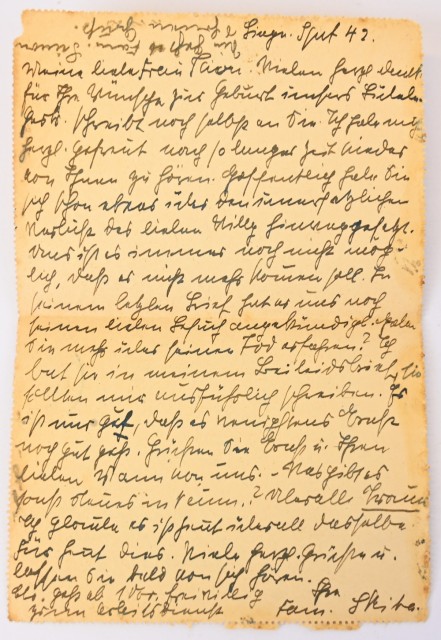 2 Sept. 42.
Meine liebe Frau Vielen herzl. Dank
für Ihre Wünsche zur Geburt unsers
schreibt noch selbst an Sie. Ich habe mich
herzl. gefreut nach so langer Zeit wieder
von Ihnen zu hören. Hoffentlich haben Sie
sich schon etwas über den unersetzlichen
Verlust des lieben Willy hinweggesetzt.
Uns ist es immer noch nicht mög-
lich, daß er nicht mehr kommen soll. In
seinem letzten Brief hat er uns noch
seinen lieben Besuch angekündigt. Haben
Sie mehr über seinen Tod erfahren? Ich
bat Sie in meinem Beileidsbrief, Sie
sollten mir ausführlich schreiben. Es
ist nur gut, daß es wenigstens Ernst
noch gut geht. Grüßen Sie Ernst u. Ihren
lieben Mann von uns. - Was gibt es
sonst Neues in
ich glaube es ist heut überall dasselbe
Für heut dies. Viele herzl. Grüße u.
lassen Sie bald von sich hören.
geht ab 1 Nov. freiwillig Ihre
zum Arbeitsdienst Fam. Skiba.